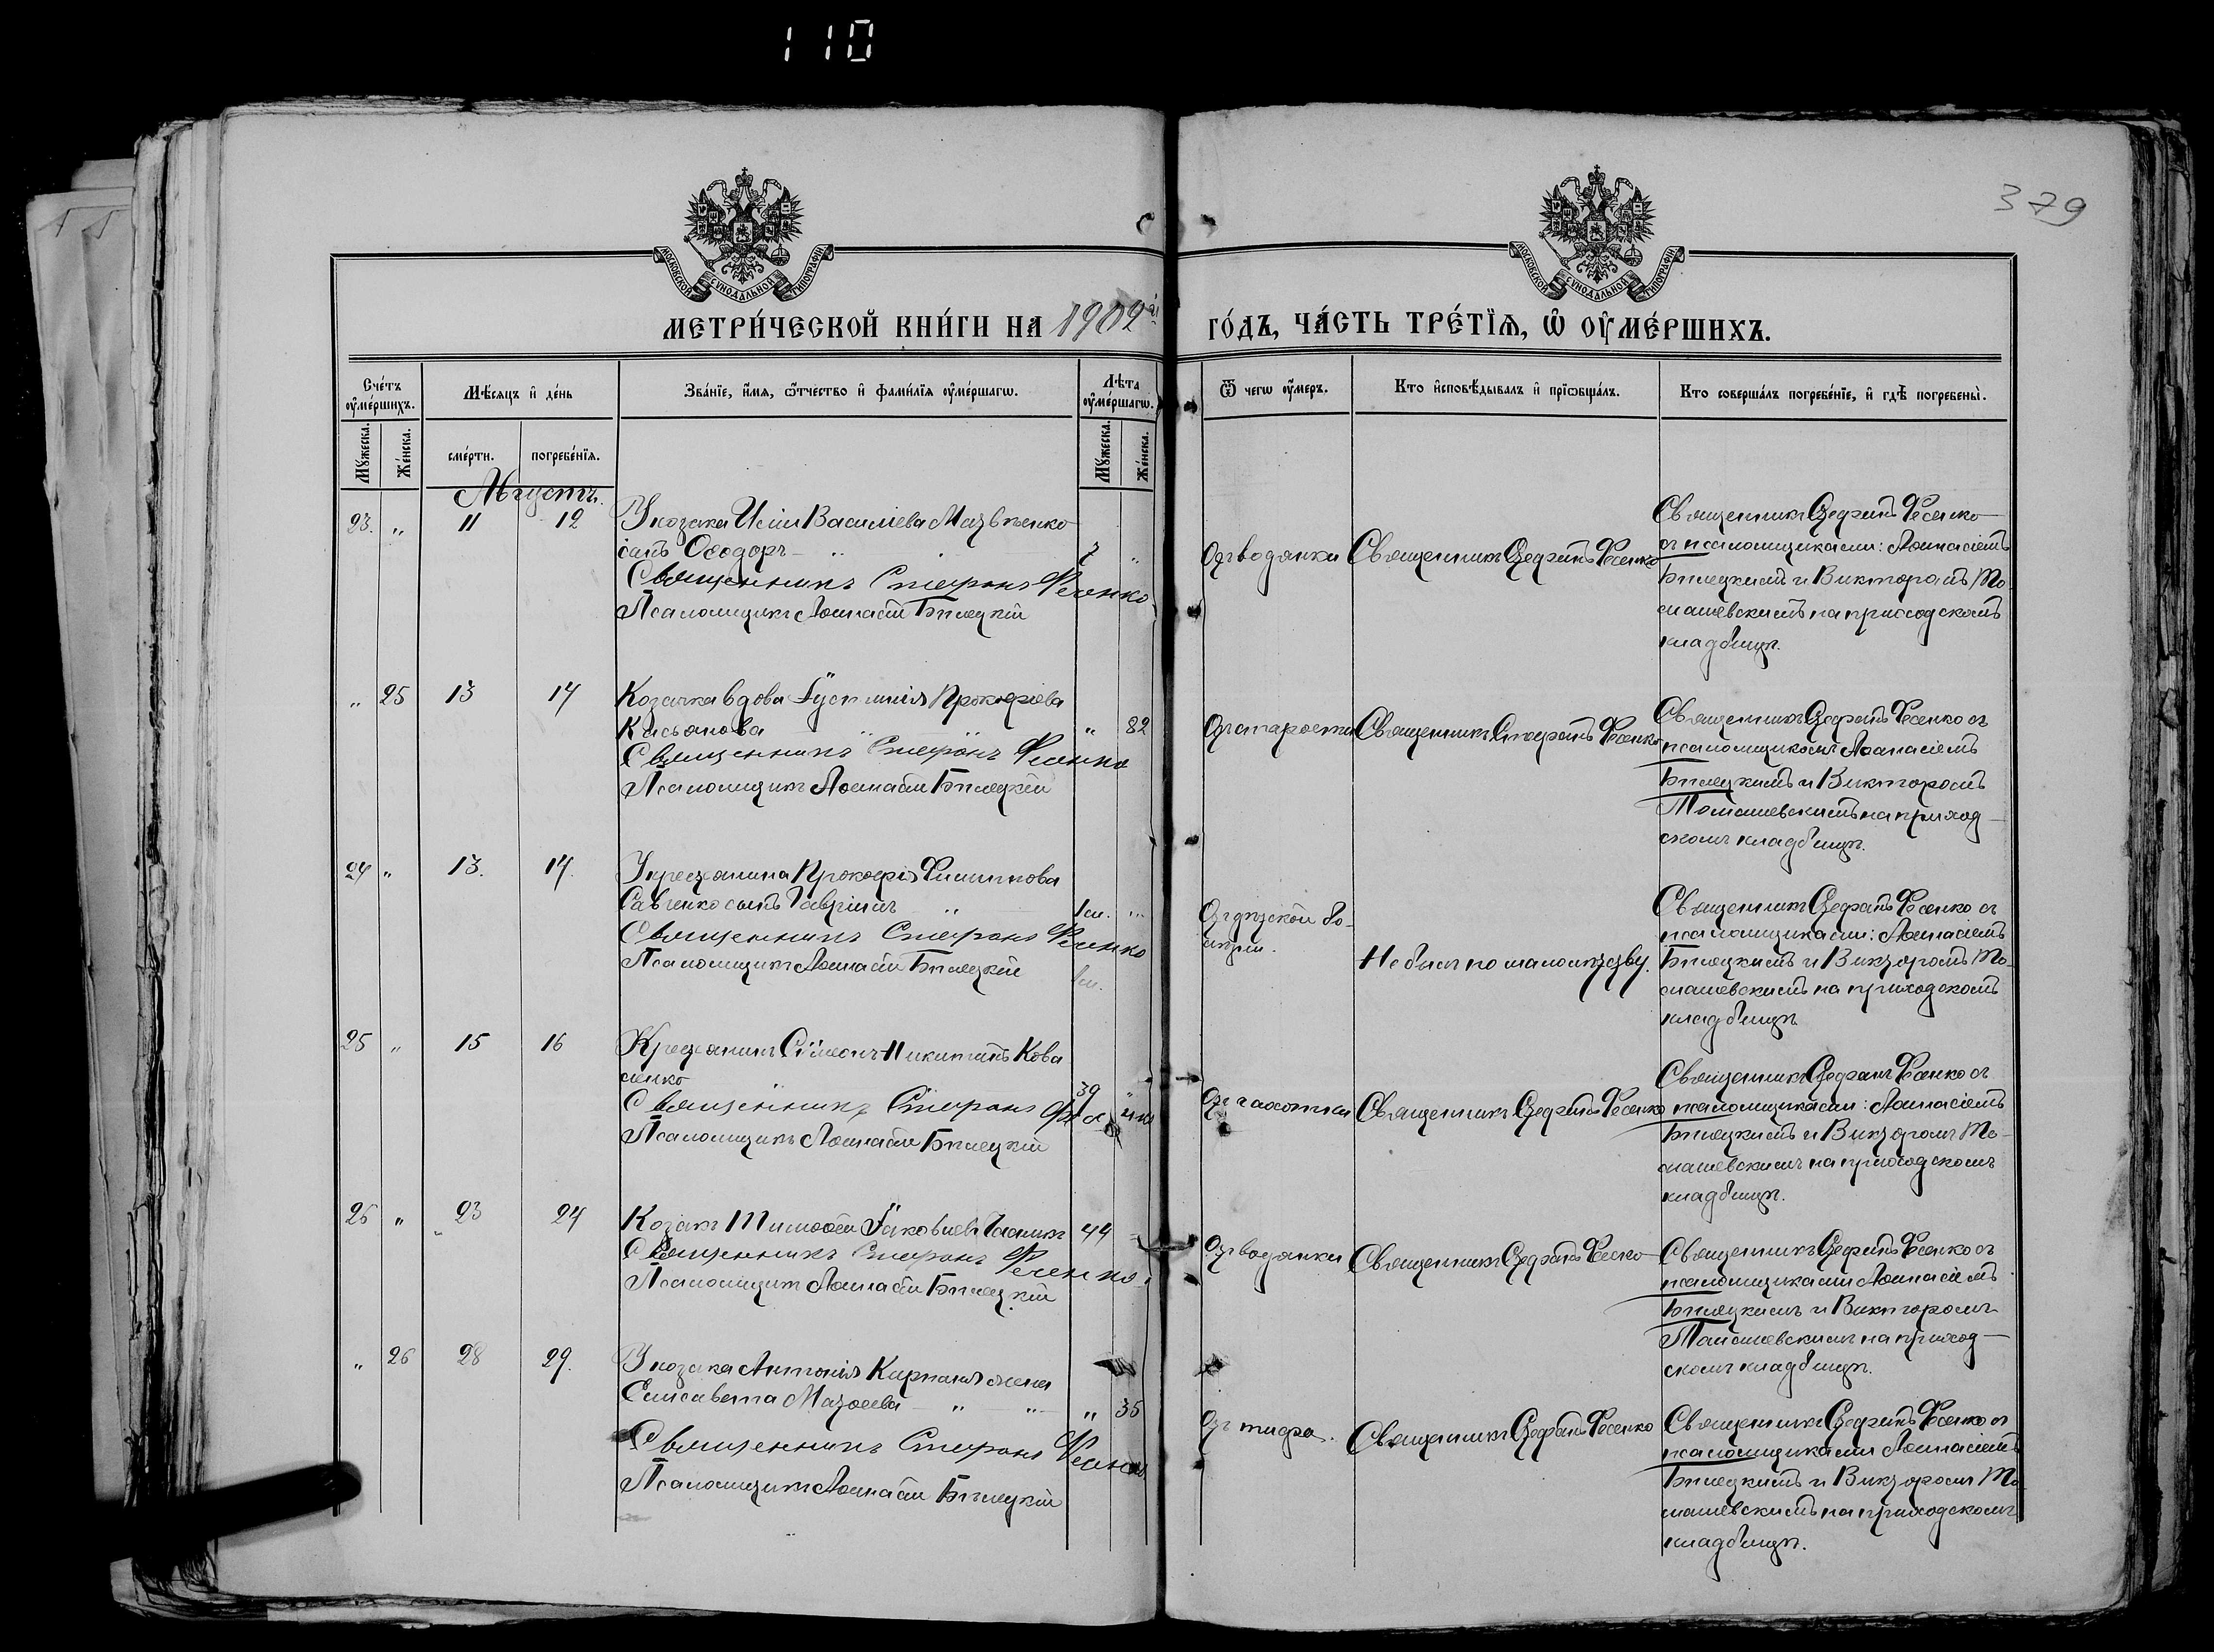 110
379
МОСКОВСКОЙ СУНОДАЛЬНОЙ ТИПОГРАФІИ
МОСКОВСКОЙ СУНОДАЛЬНОЙ ТИПОГРАФІИ
МЕТРИ́ЧЕСКОЙ КНИ́ГИ НА 1902й ГО́ДЪ, ЧА́СТЬ ТРЕ́ТЇѦ, Ѡ ОУ҆МЕ́РШИХЪ.
Сче́тъ оу҆ме́ршихъ.
Мѣ́сяцъ и҆ де́нь
Зва́нїе, и҆́мя, ѻ҆́тчество и҆ фамѝлїя оу҆ме́ршагѡ.
Лѣ́та оу҆ме́ршагѡ.
Ѿ чегѡ̀ оу҆́меръ.
Кто̀ и҆сповѣ́дывалъ и҆ прїѡбща́лъ.
Кто̀ соверша́лъ погребе́нїе, и҆ гдѣ̀ погребены̀.
Мꙋ́жеска.
Же́нска.
сме́рти.
погребе́нїя.
Мꙋ́жеска.
Же́нска.
Августъ.
23. " 11 12 У козака Василіева
сынъ Ѳеодоръ " "
Священникъ Стефанъ Фесенко
Псаломщикъ Аѳанасій Бѣлецкій
Отъ водянки Священникъ Стефанъ Фесенко
Священникъ Стефанъ Фесенко
съ псаломщиками: Аѳанасіемъ
Бѣлецкимъ и Викторомъ То-
машевскимъ на приходскомъ
кладбищѣ.
" 25 13 14 Козачка вдова Іустинія Прокофіева
Касьянова " 82
Священникъ Стефанъ Фесенко
Псаломщикъ Аѳанасій Бѣлецкій
Отъ старости Священникъ Стефанъ Фесенко
Священникъ Стефанъ Фесенко съ
псаломщикомъ Аѳанасіемъ
Бѣлецкимъ и Викторомъ
Томашевскимъ на приход-
скомъ кладбищѣ.
24 " 13. 14. У крестьянина Прокофія Филиппова
Савченко сынъ Гавріилъ " 1м. "
Священникъ Стефанъ Фесенко
Псаломщикъ Аѳанасій Бѣлецкій
1м.
Отъ дѣтской бо-
лѣзни.
Не былъ по малолѣтству.
Священникъ Стефанъ Фесенко съ
псаломщиками: Аѳанасіемъ
Бѣлецкимъ и Викторомъ То-
машевскимъ на приходскомъ
кладбищѣ
25 " 15 16 Крестьянинъ Сѵмеонъ Никитинъ Кова
ленко 39 "
Священникъ Стефанъ Фесенко
Псаломщикъ Аѳанасій Бѣлецкій
Отъ чахотки Священникъ Стефанъ Фесенко
Священникъ Стефанъ Фесенко съ
псаломщиками: Аѳанасіемъ
Бѣлецкимъ и Викторомъ То-
машевскимъ на приходскомъ
кладбищѣ.
26 " 23 24 Козакъ Тимоѳей Іаковлевъ 44
Священникъ Стефанъ Фесенко
Псаломщикъ Аѳанасій Бѣлецкій
Отъ водянки Священникъ Стефанъ Фесенко
Священникъ Стефанъ Фесенко съ
псаломщиками Аѳанасіемъ
Бѣлецкимъ и Викторомъ
Томашевскимъ на приход-
скомъ кладбищѣ.
" 26 28 29. У козака Антонія жена
Елисавета " " " 35
Священникъ Стефанъ Фесенко
Псаломщикъ Аѳанасій Бѣлецкій
Отъ тифа. Священникъ Стефанъ Фесенко
Священникъ Стефанъ Фесенко съ
псаломщиками Аѳанасіемъ
Бѣлецкимъ и Викторомъ То-
машевскимъ на приходскомъ
кладбищѣ.